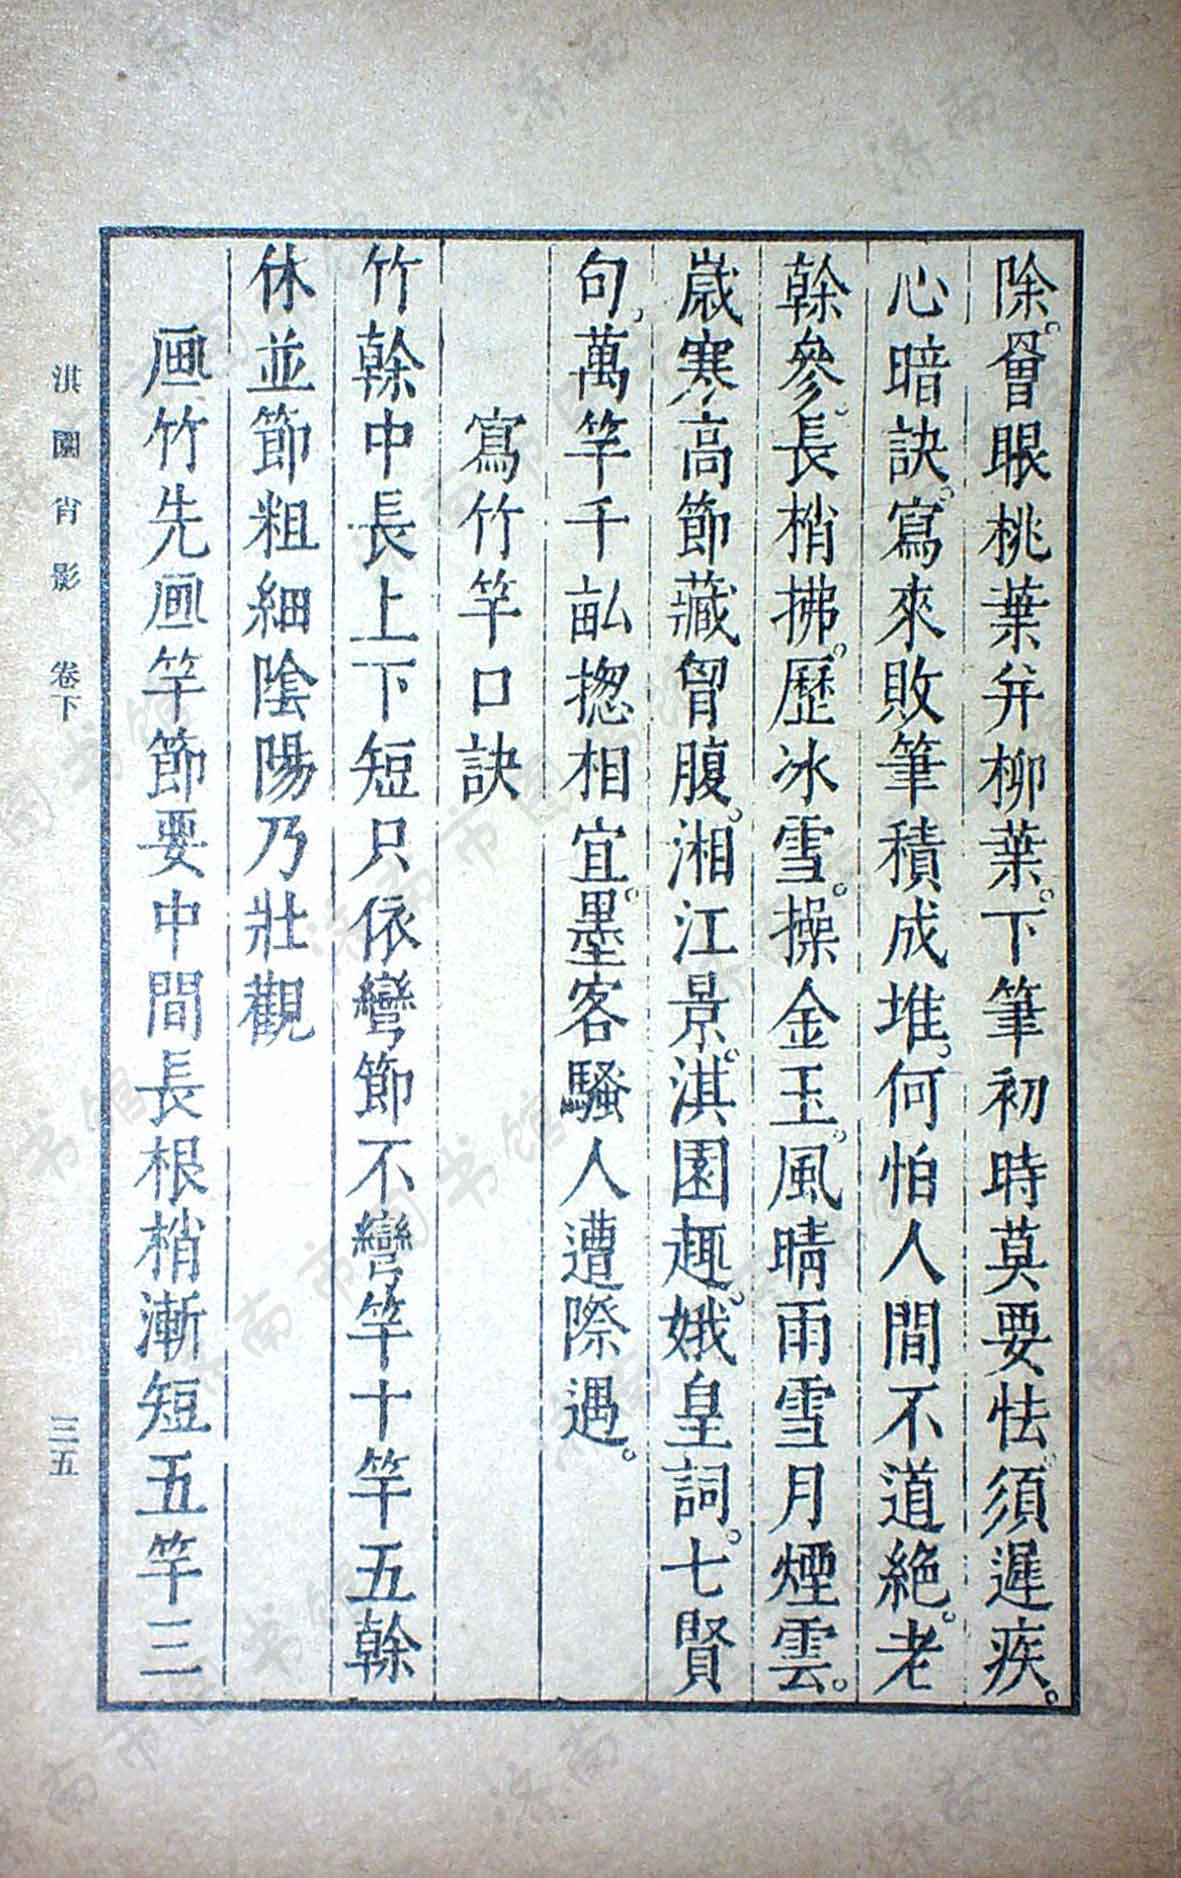 除。罾眼桃葉并柳葉。下筆初時莫要怯。須遲疾。
心暗訣。寫來敗筆積成堆。何怕人間不道絶。老
榦參。長梢拂。歷冰雪。操金玉。風晴雨雪月煙雲。
歲寒高節藏胷腹。湘江景。淇園趣。娥皇詞。七賢
句。萬竿千畝揔相宜。墨客騷人遭際遇。
寫竹竿口訣
竹榦中長上下短只依彎節不彎竿十竿五榦
休並節粗細陰陽乃壯觀
画竹先画竿節要中間長根梢漸短五竿三
淇園肖影 卷下 三五
济南市图书馆